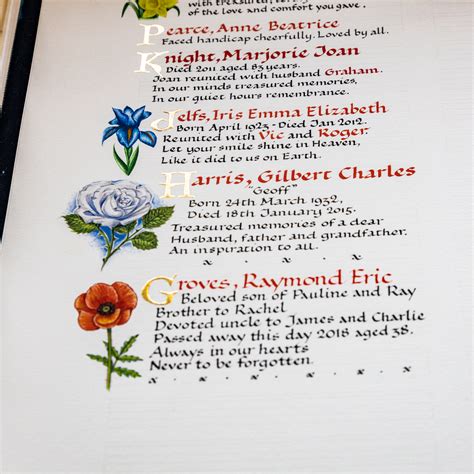 of the love and comfort you gave.
Pearce, Anne Beatrice
Faced handicap cheerfully. Loved by all.
Knight, Marjorie Joan
Died 2011 aged 83 years.
Joan reunited with husband Graham.
In our minds treasured memories,
In our quiet hours remembrance.
Jelfs, Iris Emma Elizabeth
Born April 1923 - Died Jan 2012.
Reunited with Vic and Roger.
Let your smile shine in Heaven,
Like it did to us on Earth.
Harris, Gilbert Charles
"Geoff"
Born 24th March 1932,
Died 18th January 2015.
Treasured memories of a dear
Husband, father and grandfather.
An inspiration to all.
Groves, Raymond Eric
Beloved son of Pauline and Ray
Brother to Rachel
Devoted uncle to James and Charlie
Passed away this day 2018 aged 38.
Always in our hearts
Never to be forgotten.